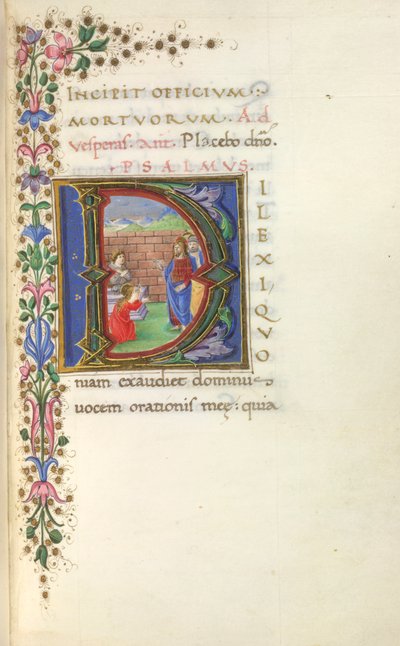 INCIPIT OFFICIVM
MORTVORVM. Ad
vesperas. Ant. Placebo dño.
PSALMVS.
DILEXI QVO
niam exaudiet dominus
vocem orationis meę: quia